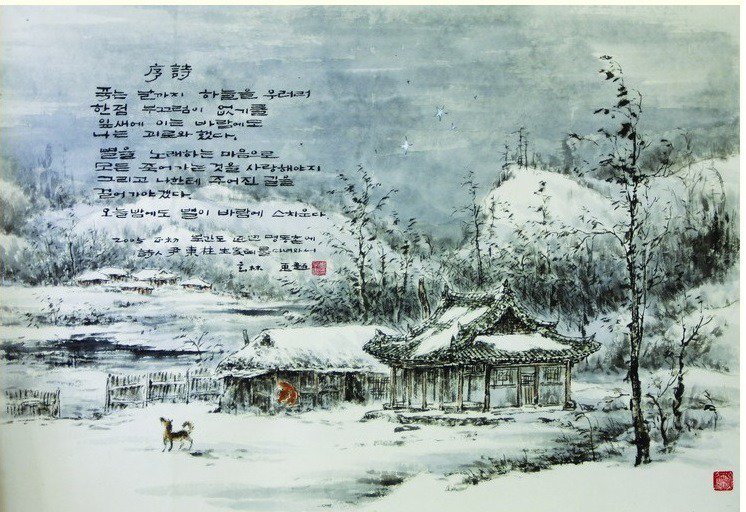 序詩
죽는 날까지 하늘을 우러러
한점 부끄럼이 없기를
잎새에 이는 바람에도
나는 괴로와 했다.
별을 노래하는 마음으로
모든 죽어가는 것을 사랑해야지
그리고 나한테 주어진 길을
걸어가야겠다.
오늘밤에도 별이 바람에 스치운다
2005 북간도 명동촌에
詩人 尹東柱生家를